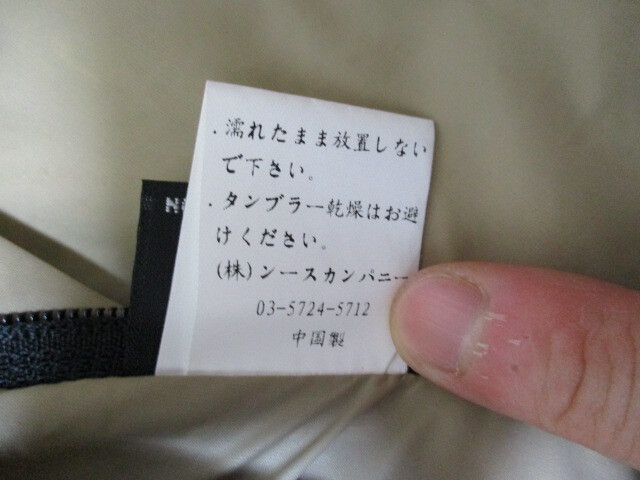 .濡れたまま放置しない
で下さい。
.タンブラー乾燥はお避
けください。
(株)シースカンパニー
03-5724-5712
中国製